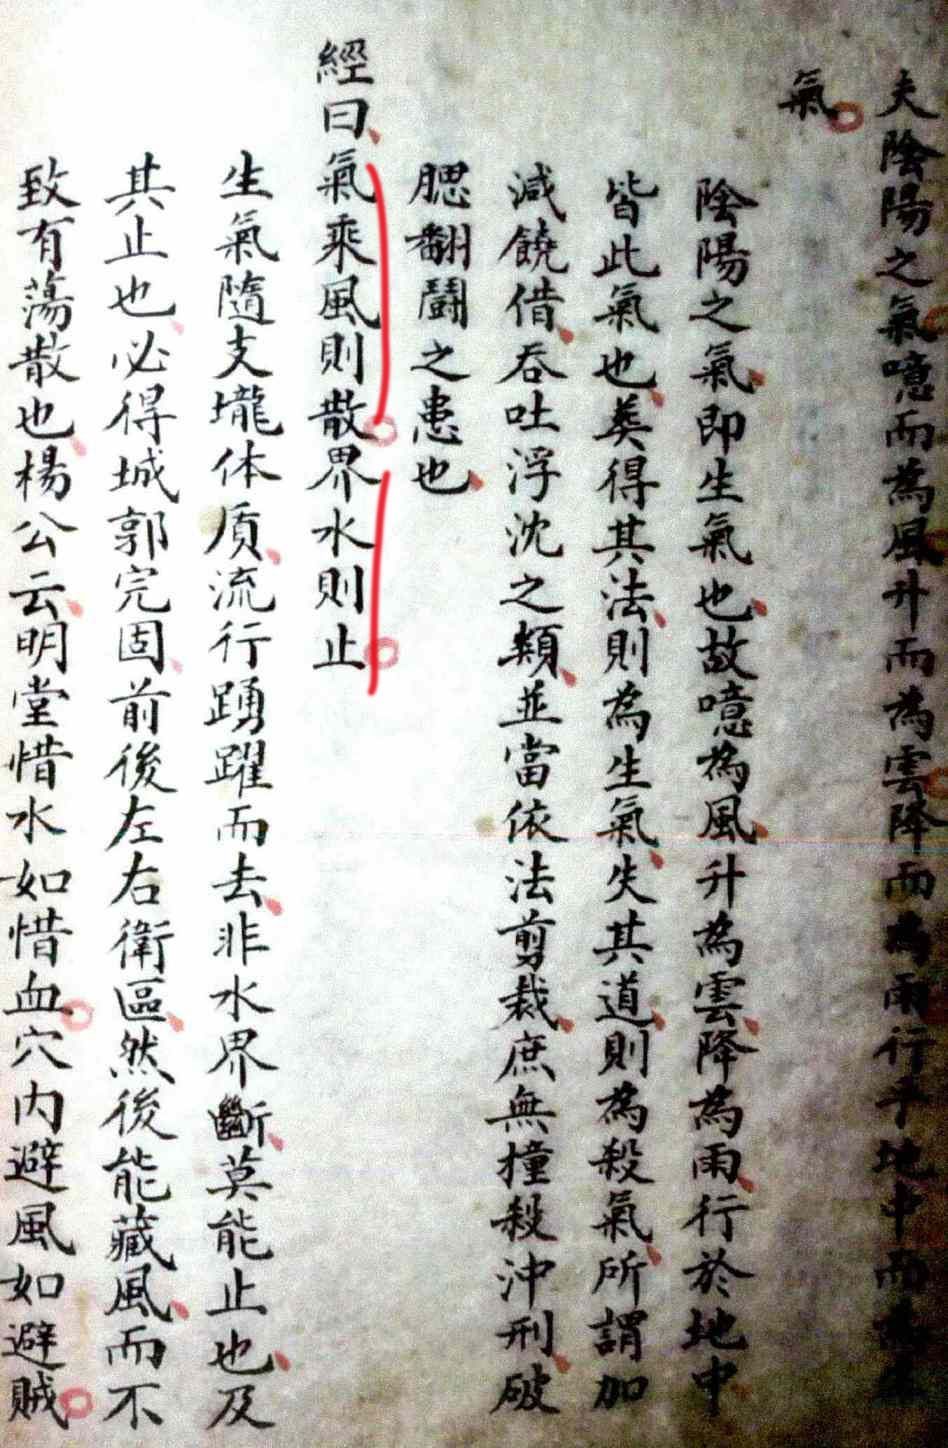 夫陰陽之氣噫而為風升而為雲降而為雨行乎地中而為生
氣
陰陽之氣即生氣也故噫為風升為雲降為雨行於地中
皆此氣也葬得其法則為生氣失其道則為殺氣所謂加
減饒借吞吐浮沈之類並當依法剪裁庶無撞殺沖刑破
腮翻鬪之患也
經曰氣乘風則散界水則止
生氣隨支壠体质流行踴躍而去非水界斷莫能止也及
其止也必得城郭完固前後左右衛區然後能藏風而不
致有蕩散也楊公云明堂惜水如惜血穴內避風如避賊